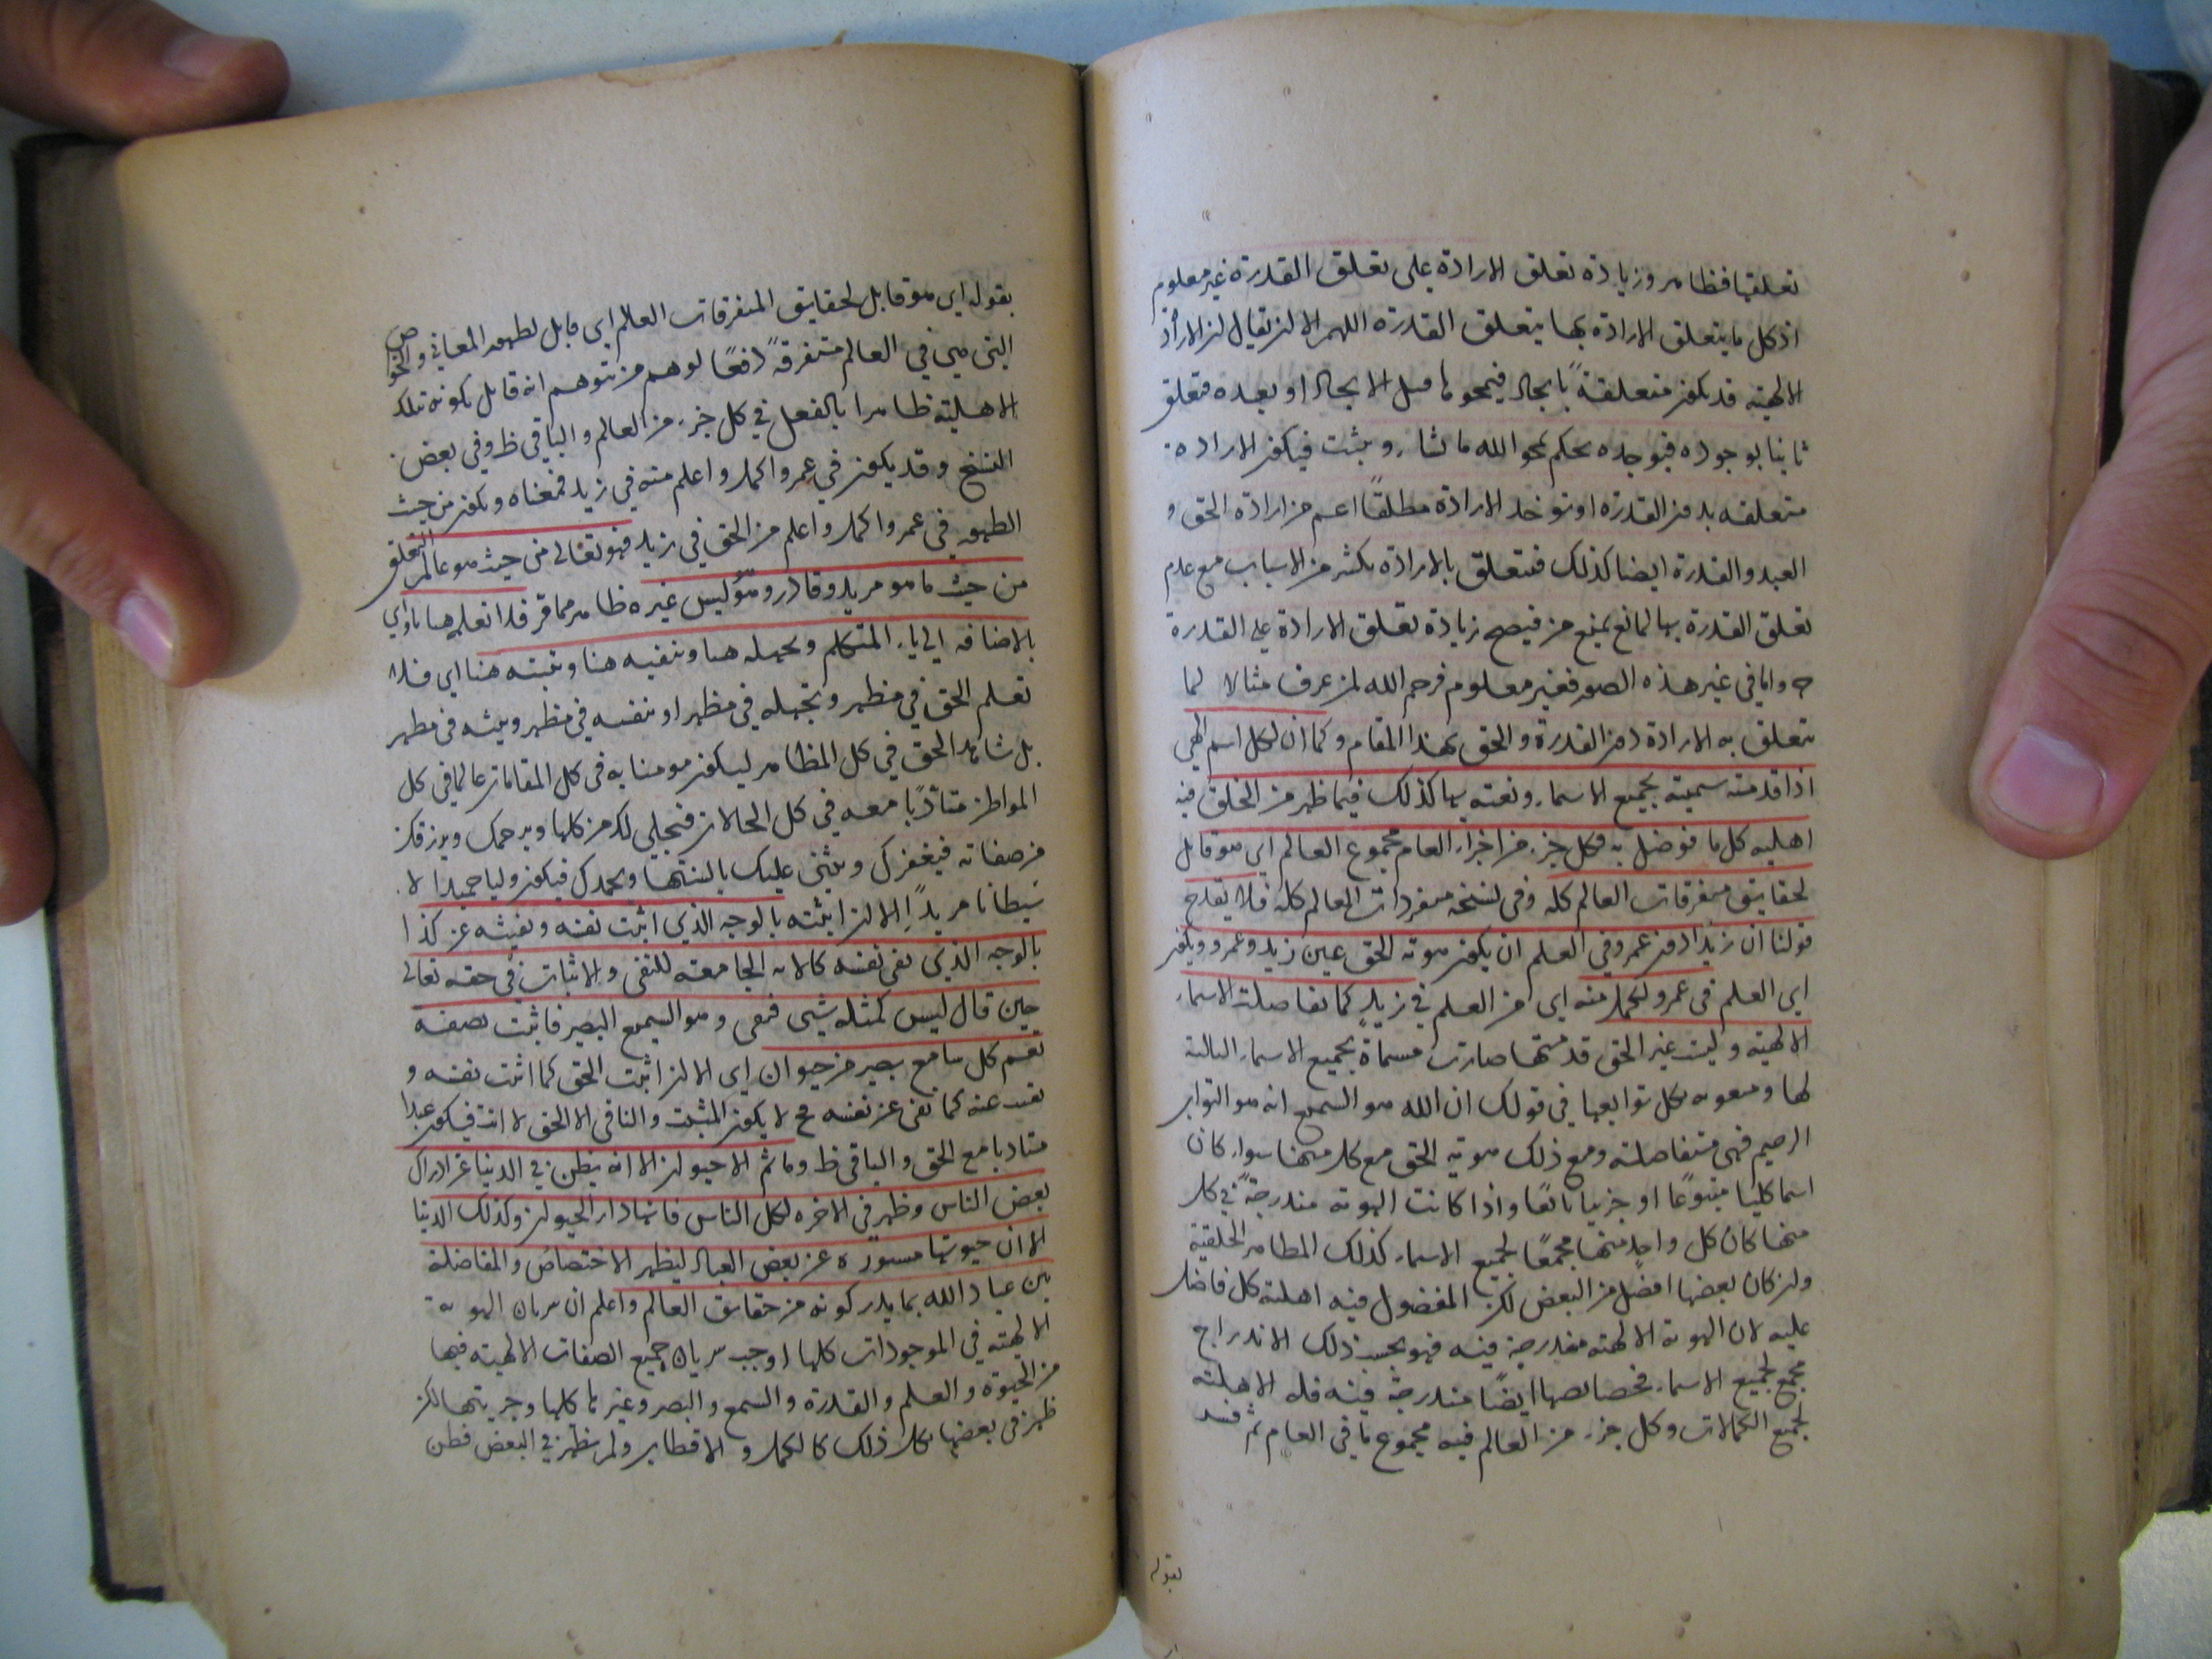 تعلقها فظاهر وزيادة تعلق الارادة على تعلق القدرة غير معلوم
اذ كل ما يتعلق الارادة بها يتعلق القدرة اللهم الا ان يقال ان الارادة
الالهية قد يكون متعلقة بايجاد فيمحو ما قبل الايجاد او بعده متعلق
ثانيا بوجوده فيوجده بحكم يمحو الله ما يشاء ويثبت فيكون الارادة
متعلقه بدون القدرة او توخد الارادة مطلقًا اعم من ارادة الحق و
العبد والقدرة ايضا كذلك فتعلق بالارادة بكثير من الاسباب مع عدم
تعلق القدرة بها لمانع يمنع من فيصح زيادة تعلق الارادة على القدرة
ح واما في غير هذه الصور فغير معلوم فرحم الله لمن عرف مثالا لما
تتعلق به الارادة دون القدرة والحق بهذا المقام وكما ان لكل اسم الهي
اذا قدمته سميته بجميع الاسماء ونعته بها كذلك فيما ظهر من الخلق فيه
اهلية كل ما فوضل به فكل جزء من اجزاء العالم مجموع العالم اي هو قابل
لحقايق متفرقات العالم كله وفي نسخه مفردات العالم كله فلا يقدح
قولنا ان زيدا دون عمرو في العلم ان يكون هوية الحق عين زيد وعمرو ويكون
اي العلم في عمرو اكمل منه اي من العلم في زيد كما تفاضلت الاسماء
الالهية وليست غير الحق قد متها صارت مسماة بجميع الاسماء التالية
لها ومنعوته بكل توابعها في قولك ان الله هو السميع انه هو التواب
الرحيم فهي متفاضلة ومع ذلك هوية الحق مع كل منها سواء كان
اسما كليا متبوعًا او جزييا تابعًا واذا كانت الهوية مندرجةً في كل
منها كان كل واحد منها مجمعًا لجميع الاسماء كذلك المظاهر الخلقية
وان كان بعضها افضل من البعض لكن المفضول فيه اهلية كل فاضل
عليه لان الهوية الالهية مندرجة فيه فهو بحسب ذلك الاندراج
مجمع لجميع الاسماء فخصائصها ايضًا مندرجة فيه فله الاهلية
لجميع الكمالات وكل جزء من العالم فيه مجموع ما في العالم ثم فسر
بقوله
بقوله اي هو قابل لحقايق المتفرقات العالم اي قابل لظهور المعاني والخواص
التي هي في العالم متفرقةً دفعًا لوهم من يتوهم انه قابل يكونه تلك
الاهلية ظاهرا بالفعل في كل جزء من العالم والباقي ظ وفي بعض
النسخ وقد يكون في عمرو اكمل واعلم منه في زيد فمعناه ويكون من حيث
الظهور في عمرو اكمل واعلم من الحق في زيد فهو تعالى من حيث هو عالم اعم في التعلق
من حيث ما هو مريد وقادر وهو ليس غيره ظاهر مما قر فلا تعلمه هنا يا ولي
بالاضافه الى ياء المتكلم وتجهله هنا وتنفيه هنا وتثبته هنا اي فلا
تعلم الحق في مظهر وتجهله في مظهر او تنفيه في مظهر وتثبته في مظهر
بل شاهد الحق في كل المظاهر ليكون مومنا به في كل المقامات عالما في كل
المواطن متأدبًا معه في كل الحالات فتجلي لك من كلها ويرحمك ويرزقك
من صفاته فيغفر لك ويثني عليك بالسنتها ويحمدك فيكون وليا حميدا لا
شيطانا مريدًا الا ان اثبته بالوجه الذي اثبت نفسه ونفيته عن كذا
بالوجه الذي نفى نفسه كالاية الجامعة للنفي والاثبات في حقه تعالى
حين قال ليس كمثله شيى فنفى وهو السميع البصير فاثبت بصفه
تعم كل سامع بصير من حيوان اي الا ان اثبت الحق كما اثبت نفسه و
نفيت عنه كما نفى عن نفسه مح لا يكون المثبت والنافي الا الحق لا انت فيكون عبدا
متادبا مع الحق والباقي ظ وما ثم الا حيوان الا انه يبطن في الدنيا عن ادراك
بعض الناس وظهر في الاخره لكل الناس فانها دار الحيوان وكذلك الدنيا
الا ان حيوتها مستورة عن بعض العباد ليظهر الاختصاص والمفاضلة
بين عباد الله بما يدركونه من حقايق العالم واعلم ان سريان الهوية
الالهية في الموجودات كلها اوجب سريان جميع الصفات الالهية فيها
من الحيوة والعلم والقدرة والسمع والبصر وغيرها كلها وجزييتها لكن
ظهر في بعضها بكل ذلك كالكمل والاقطاب ولم يظهر في البعض فظن